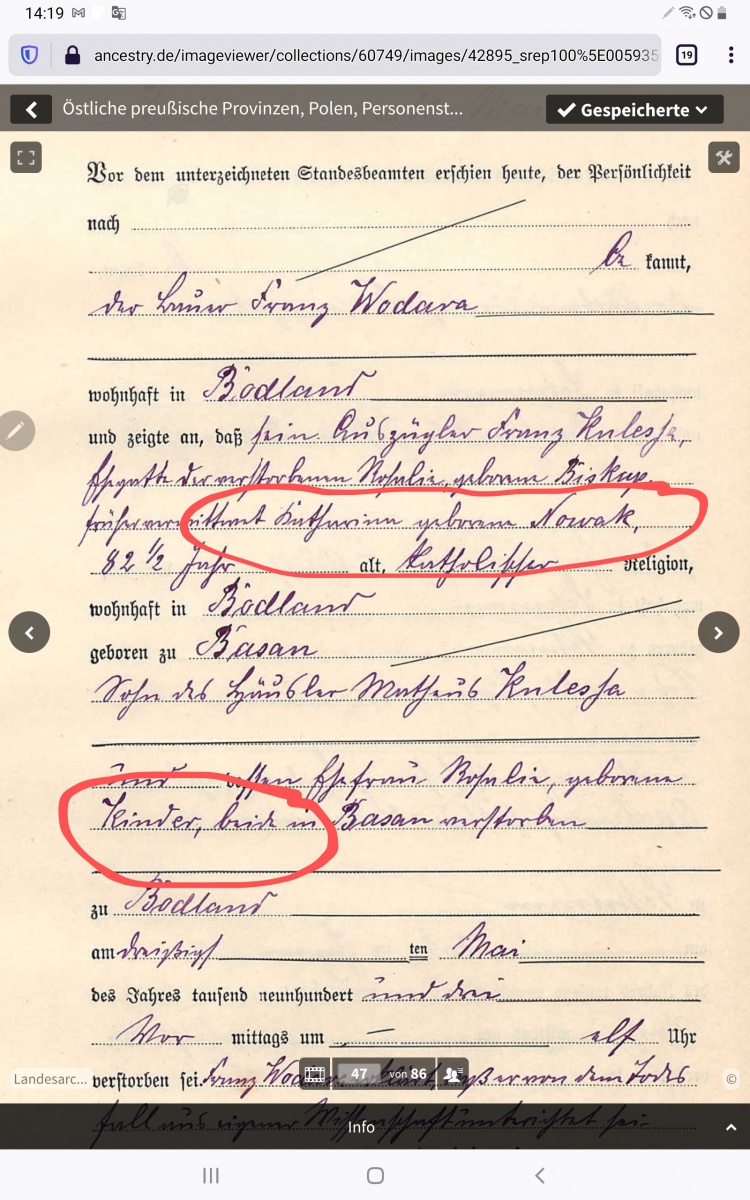 14:19
19
ancestry.de/imageviewer/collections/60749/images/42895_srep100%5E005935
Östliche preußische Provinzen, Polen, Personenst...
Gespeicherte
Vor dem unterzeichneten Standesbeamten erschien heute, der Persönlichkeit
nach
be kannt,
der Bauer Franz Wodara
wohnhaft in Bodland
und zeigte an, daß sein Auszügler Franz Kulessa,
Ehegatte der verstorbenen Rosalie, geborene Biskup,
früher verwittwet Katharina geborene Nowak,
82 1/2 Jahr alt, katholischer Religion,
wohnhaft in Bodland
geboren zu Basan
Sohn des Häusler Matheus Kulessa
und dessen Ehefrau Rosalie, geborene
Kinder, beide in Basan verstorben
zu Bodland
am dreißigsten ten Mai
des Jahres tausend neunhundert und drei
Vor mittags um elf Uhr
Landesarc...
47 von 86
verstorben sei. Franz daß er von dem Todes
©
fall aus eigener Wissenschaft unterrichtet sei
Info